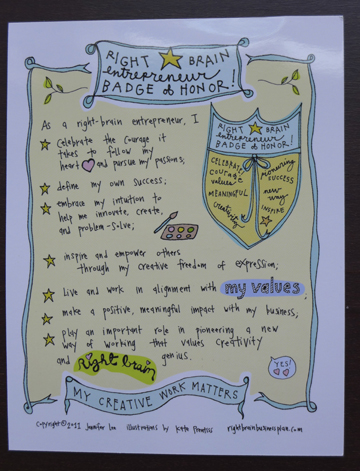 RIGHT BRAIN
entrepreneur
BADGE of HONOR!
As a right-brain entrepreneur, I
celebrate the courage it
takes to follow my
heart and pursue my passions;
define my own success;
embrace my intuition to
help me innovate, create,
and problem-solve;
inspire and empower others
through my creative freedom of expression;
live and work in alignment with my values;
make a positive, meaningful impact with my business;
play an important role in pioneering a new
way of working that values creativity
and Right brain genius.
RIGHT BRAIN
entrepreneur
BADGE of HONOR!
CELEBRATE
courage
values
MEANINGFUL
creativity
pioneering
SUCCESS
new
way
INSPIRE
YES!
MY CREATIVE WORK MATTERS
copyright © 2011 Jennifer Lee illustrations by Kate Prentiss rightbrainbusinessplan.com